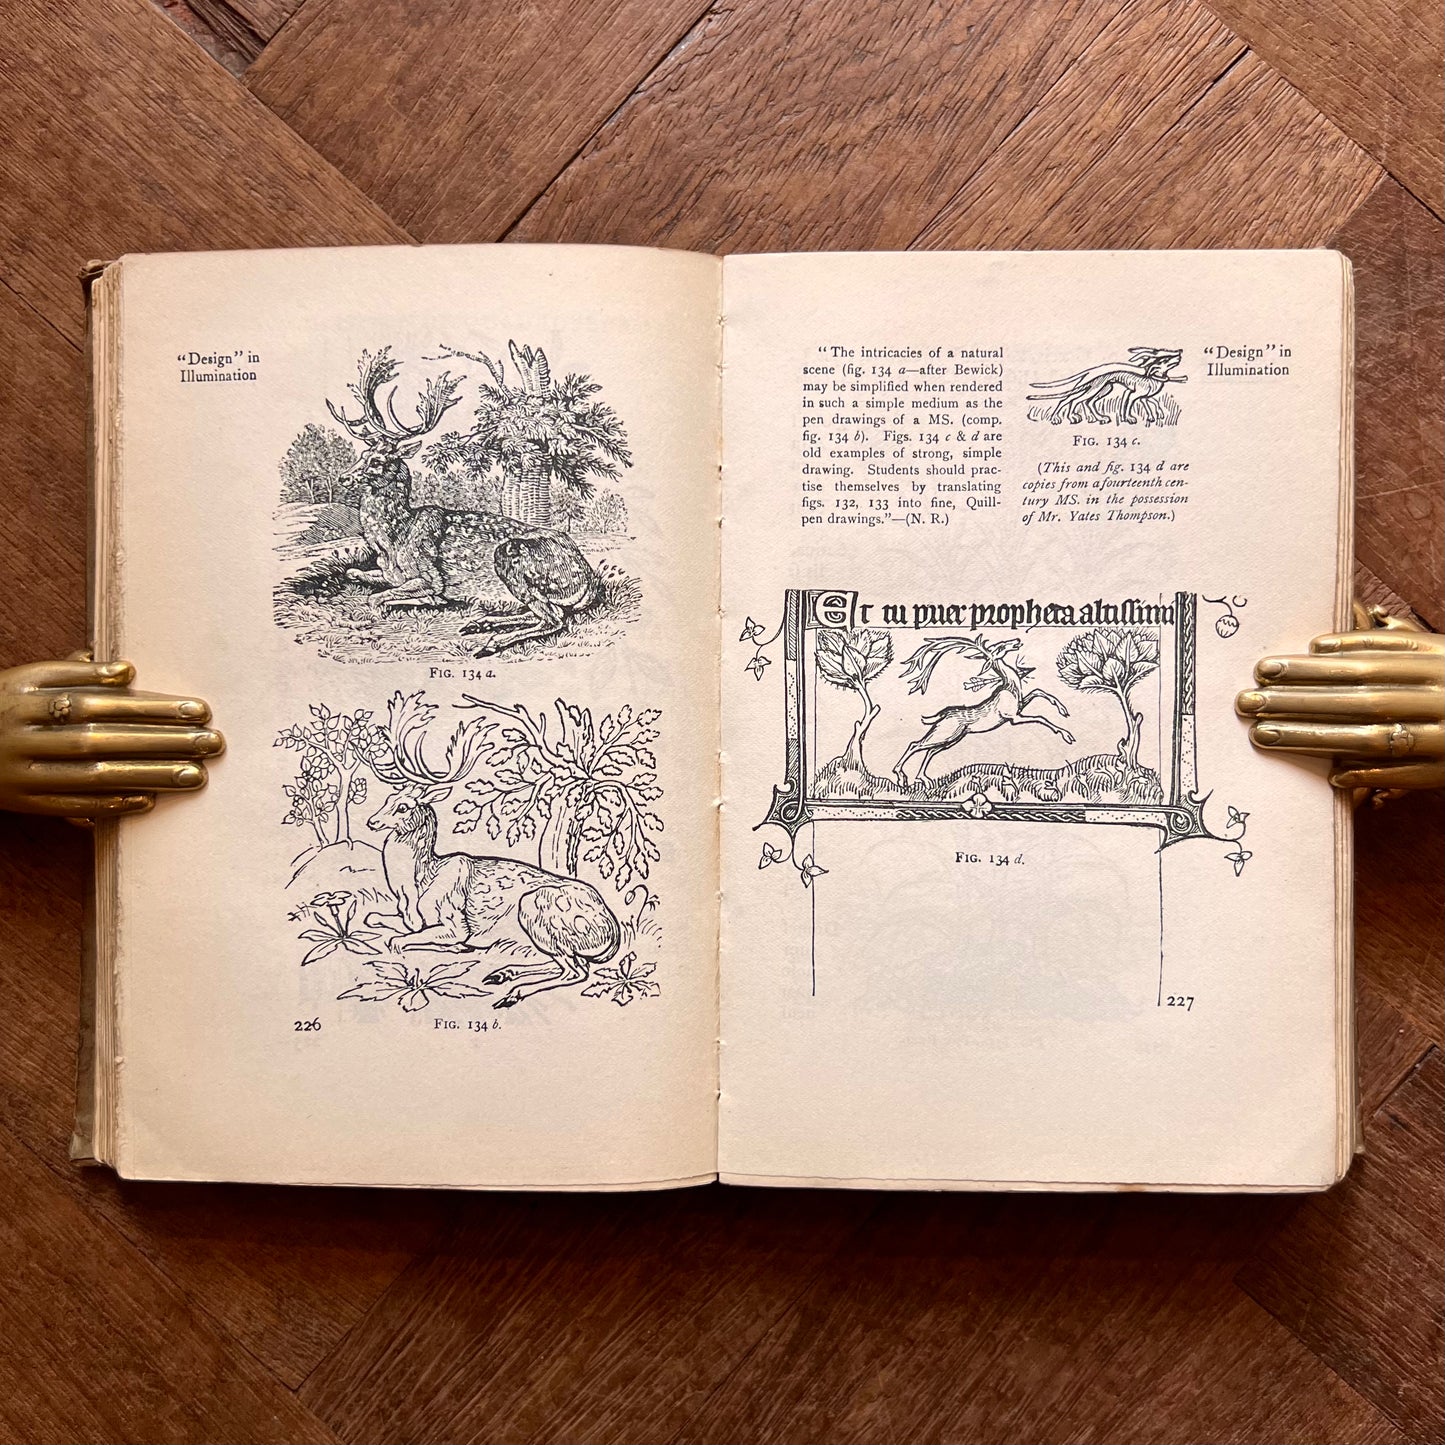 “Design” in
Illumination
FIG. 134 a.
226
FIG. 134 b.
“The intricacies of a natural
scene (fig. 134 a—after Bewick)
may be simplified when rendered
in such a simple medium as the
pen drawings of a MS. (comp.
fig. 134 b). Figs. 134 c & d are
old examples of strong, simple
drawing. Students should prac-
tise themselves by translating
figs. 132, 133 into fine, Quill-
pen drawings.”—(N. R.)
FIG. 134 c.
(This and fig. 134 d are
copies from a fourteenth cen-
tury MS. in the possession
of Mr. Yates Thompson.)
“Design” in
Illumination
Et tu puer propheta altissimi
FIG. 134 d.
227